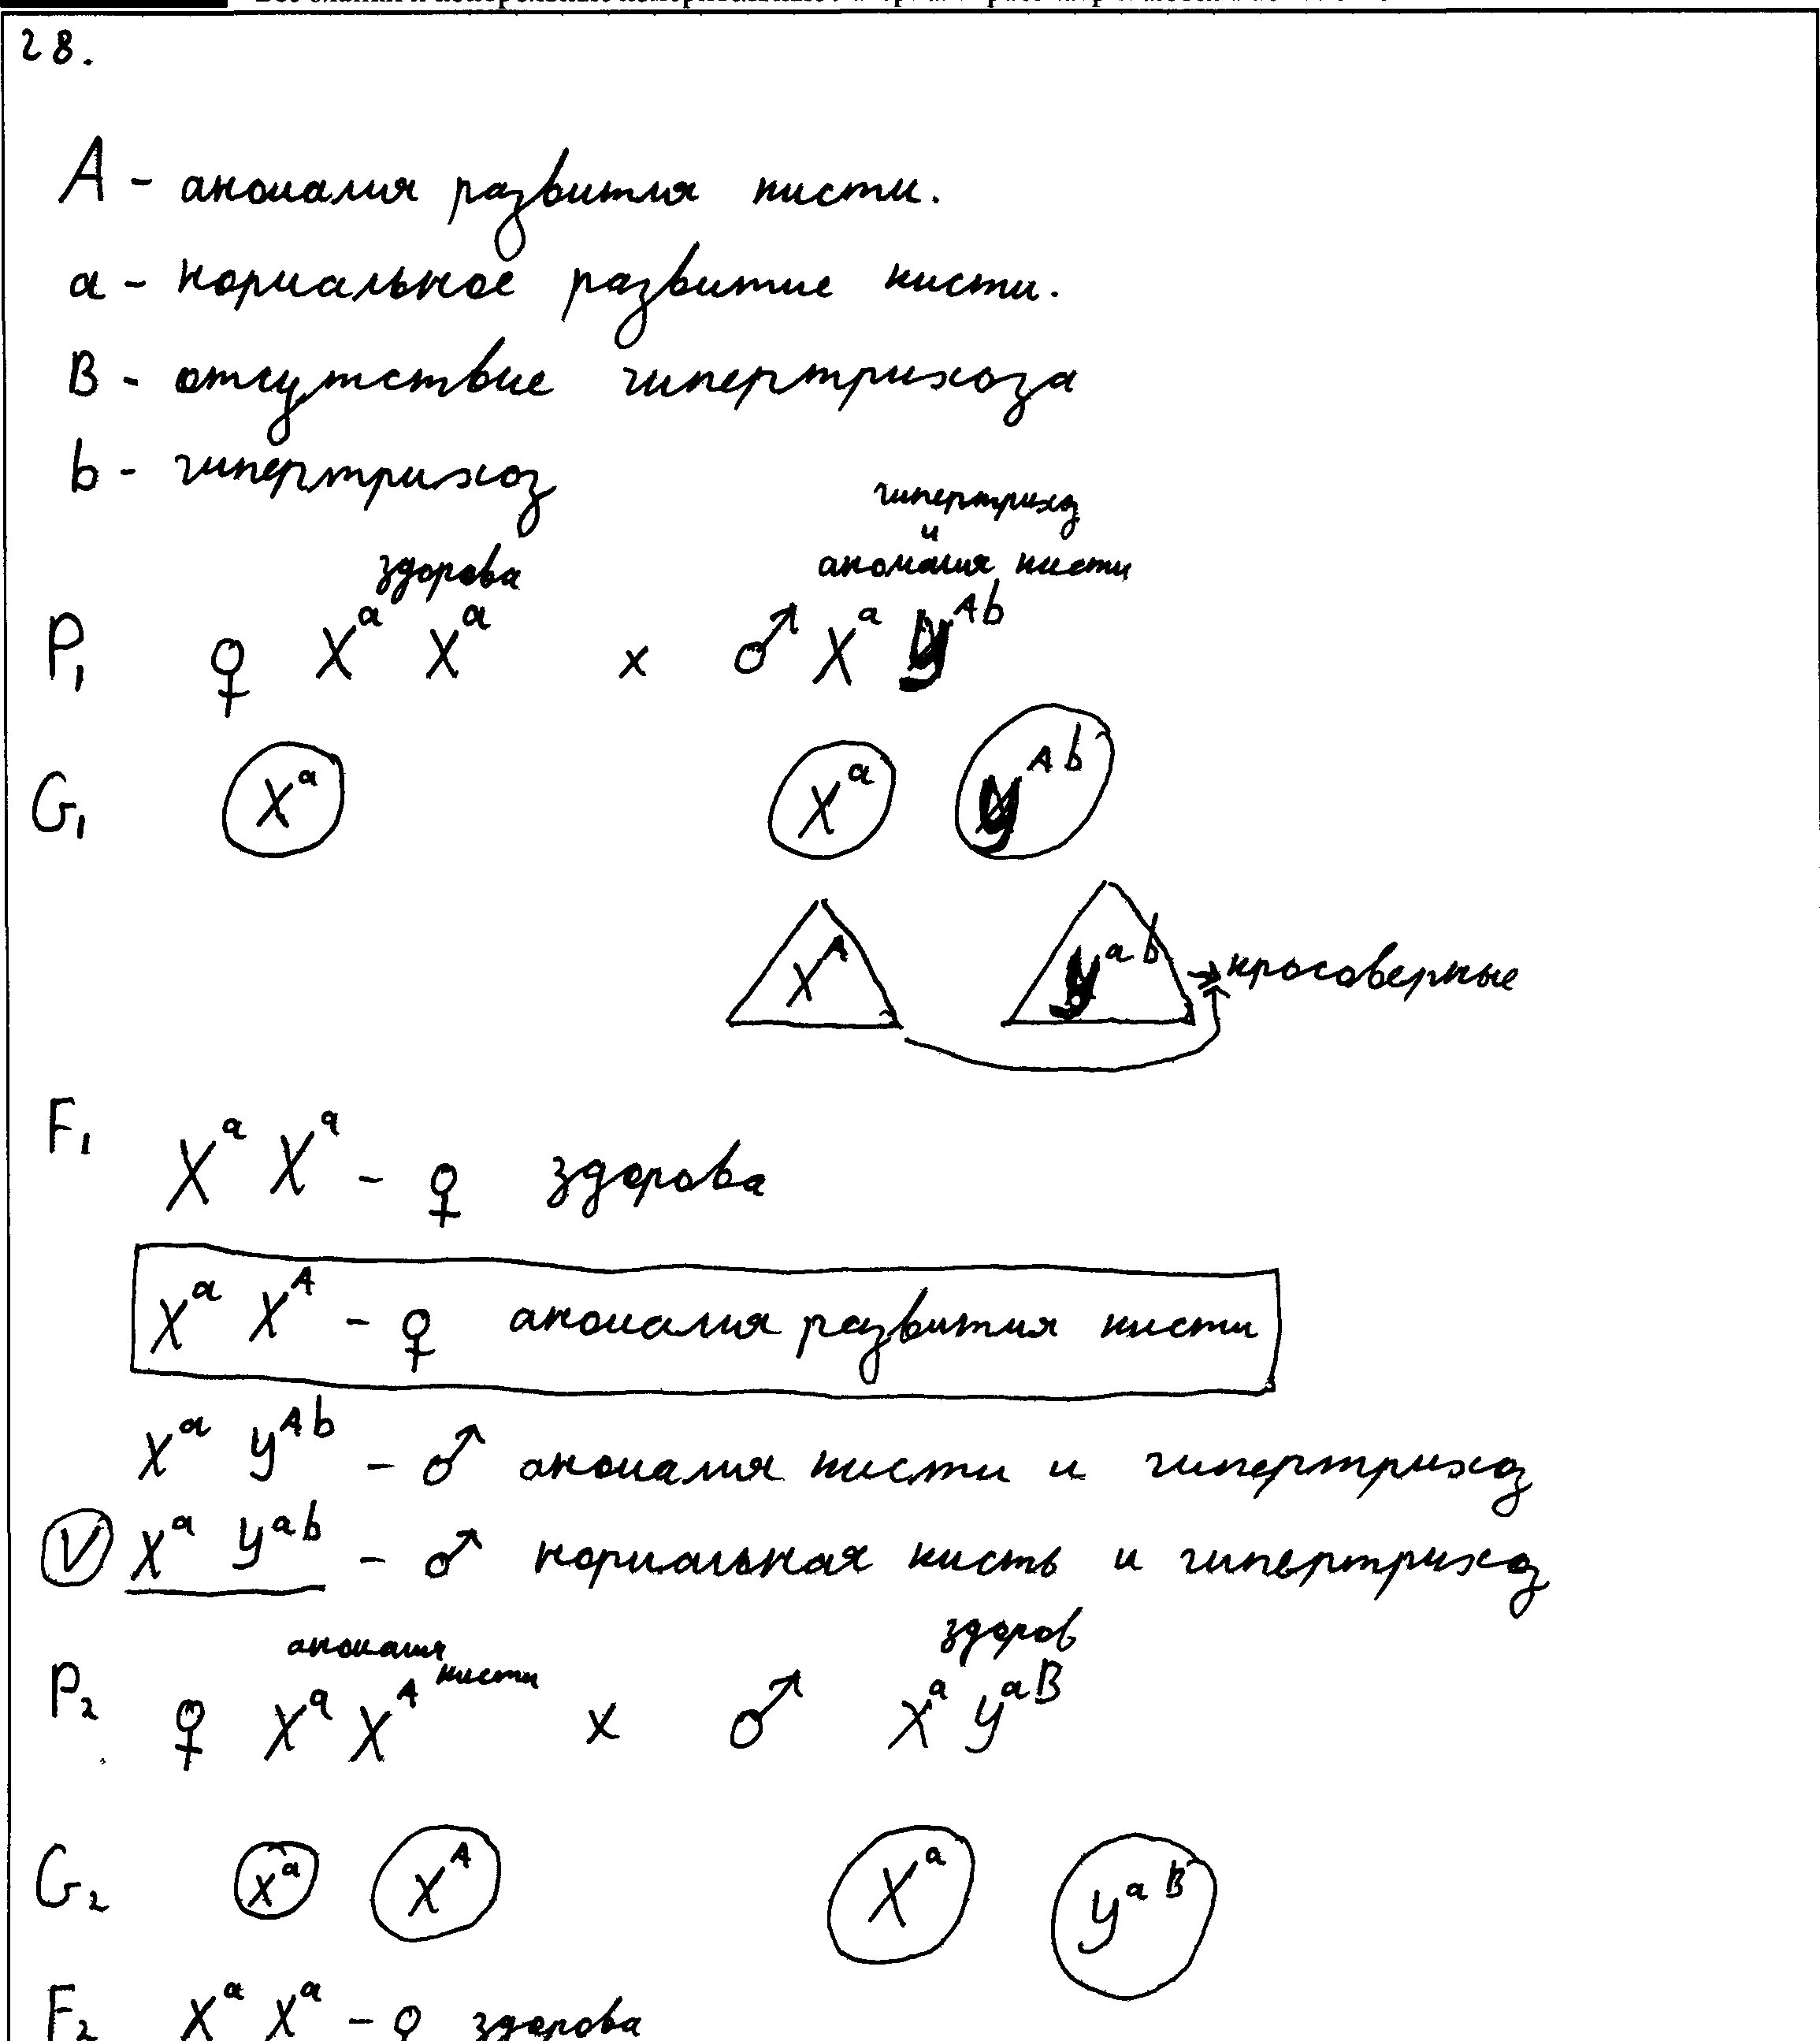 28.
A - аномалия развития кисти.
a - нормальное развитие кисти.
B - отсутствие гипертрихоза
b - гипертрихоз
здорова гипертрихоз и аномалия кисти
P₁ ♀ XᵃXᵃ x ♂ Xᵃ yᴬᵇ
G₁ Xᵃ Xᵃ yᴬᵇ
Xᴬ yᵃᵇ → кросоверные
F₁ Xᵃ Xᵃ - ♀ здорова
Xᵃ Xᴬ - ♀ аномалия развития кисти
Xᵃ yᴬᵇ - ♂ аномалия кисти и гипертрихоз
V Xᵃ yᵃᵇ - ♂ нормальная кисть и гипертрихоз
аномалия кисти здоров
P₂ ♀ Xᵃ Xᴬ x ♂ Xᵃ yᵃᴮ
G₂ Xᵃ Xᴬ Xᵃ yᵃᴮ
F₂ Xᵃ Xᵃ - ♀ здорова